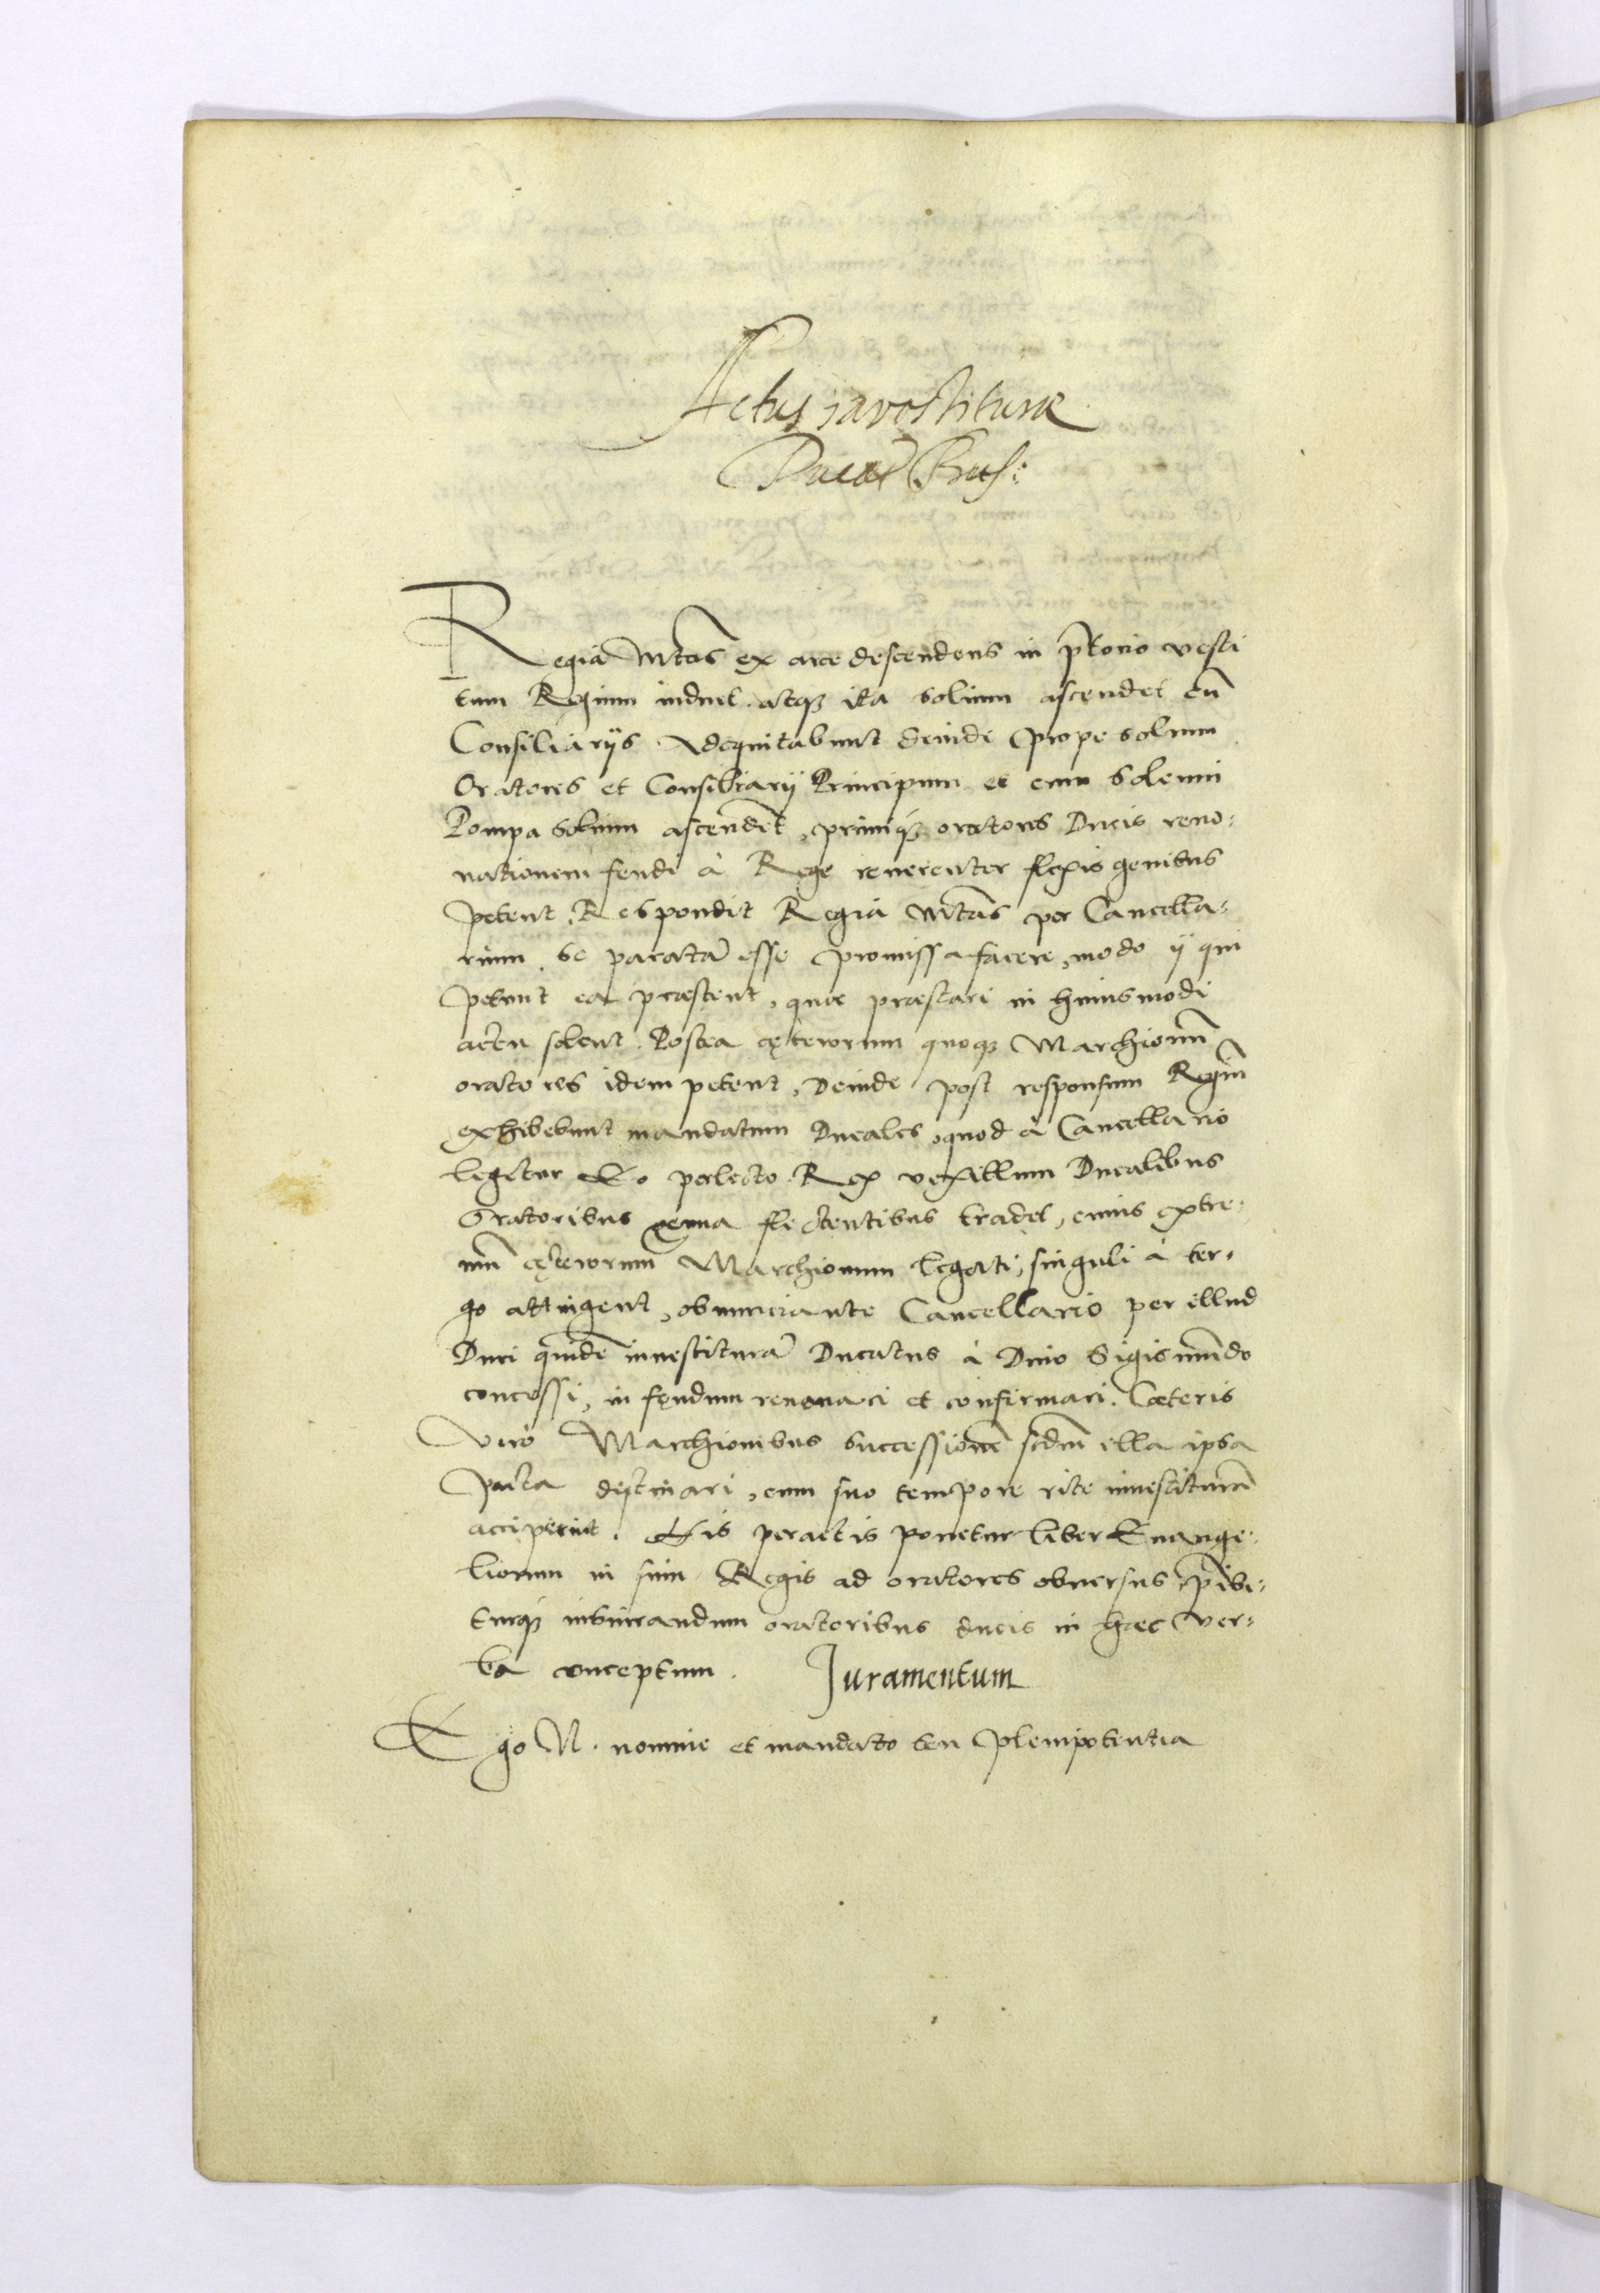 Actus investiturae
Ducat Prus:
Regia Mtas ex arce descendens in prtorio vesti
tum Regium induet atque ita solium ascendet cu
Consiliarijs Adequitabunt deinde prope solium
Oratores et Consiliarij Principum et cum solemni
Pompa solium ascendet, primique oratores Ducis reno-
uationem feudi à Rege reuerenter flexis genibus
petent. Respondit Regia Mtas per Cancella-
rium se paratā esse promissa facere, modo ij qui
petunt ea praestent, quae praestari in huiusmodi
actu solent. Postea cęterorum quoque Marchionū
oratores idem petent, Deinde post responsum Regiū
exhibebunt mandatum Ducales, quod à Cancellario
legetur Eo perlecto Rex vexillum Ducalibus
Oratoribus genua flectentibus tradet, cuius extre-
mū cęterorum Marchionum legati, singuli à ter-
go attingent, obnunciante Cancellario per illud
Duci quidē inuestiturā Ducatus à Diuo Sigismūdo
concessi, in feudum renouari et confirmari. Caeteris
vero Marchionibus successionē scdm illa ipsa
pacta destinari, cum suo tempore rite inuestiturā
acciperint. His peractis ponetur liber Euange-
liorum in sinu Regis ad oratores obuersus, prbi-
turque iusiurandum oratoribus ducis in haec ver-
ba conceptum. Juramentum
Ego N. nomine et mandato seu plenipotentia